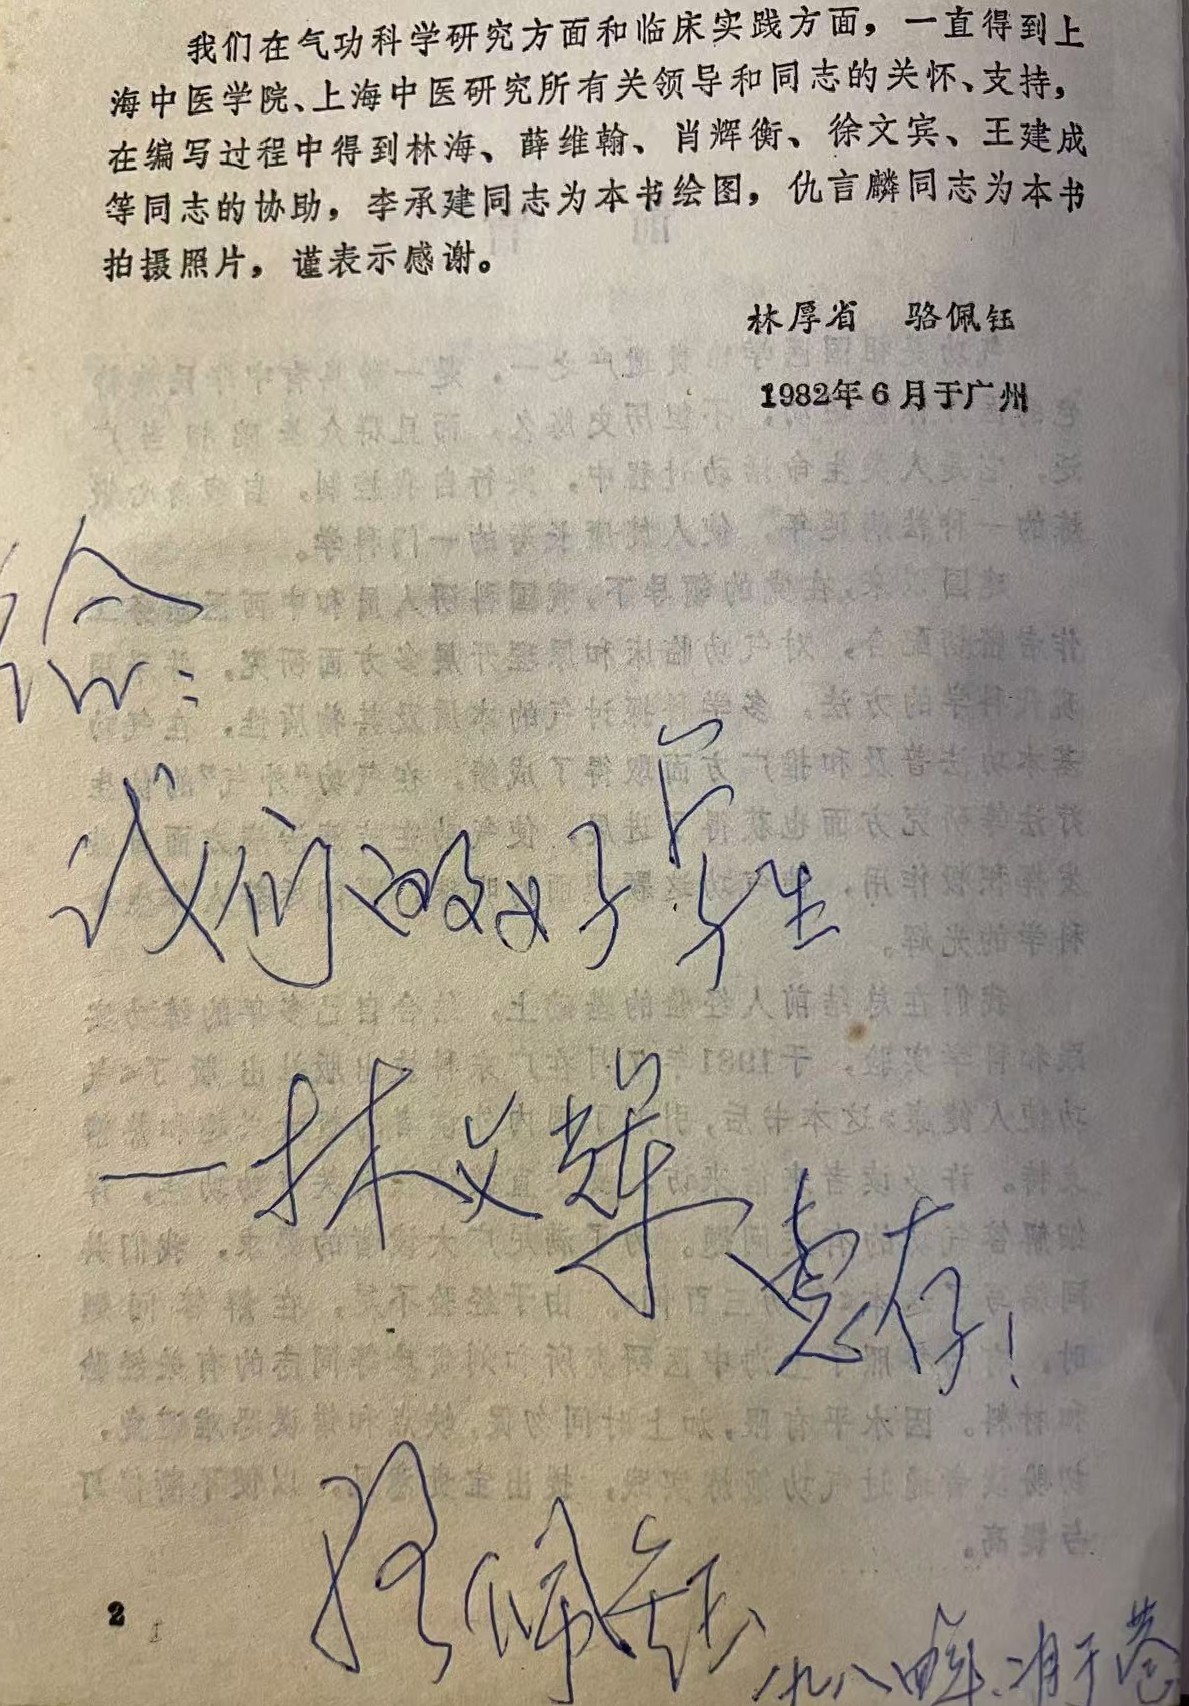 我们在气功科学研究方面和临床实践方面，一直得到上
海中医学院、上海中医研究所有关领导和同志的关怀、支持，
在编写过程中得到林海、薛维翰、肖辉衡、徐文宾、王建成
等同志的协助，李承建同志为本书绘图，仇言麟同志为本书
拍摄照片，谨表示感谢。
林厚省 骆佩钰
1982年6月于广州
给：
我们的好学生
—林文 惠存！
骆佩钰
2
一九八四年二月于